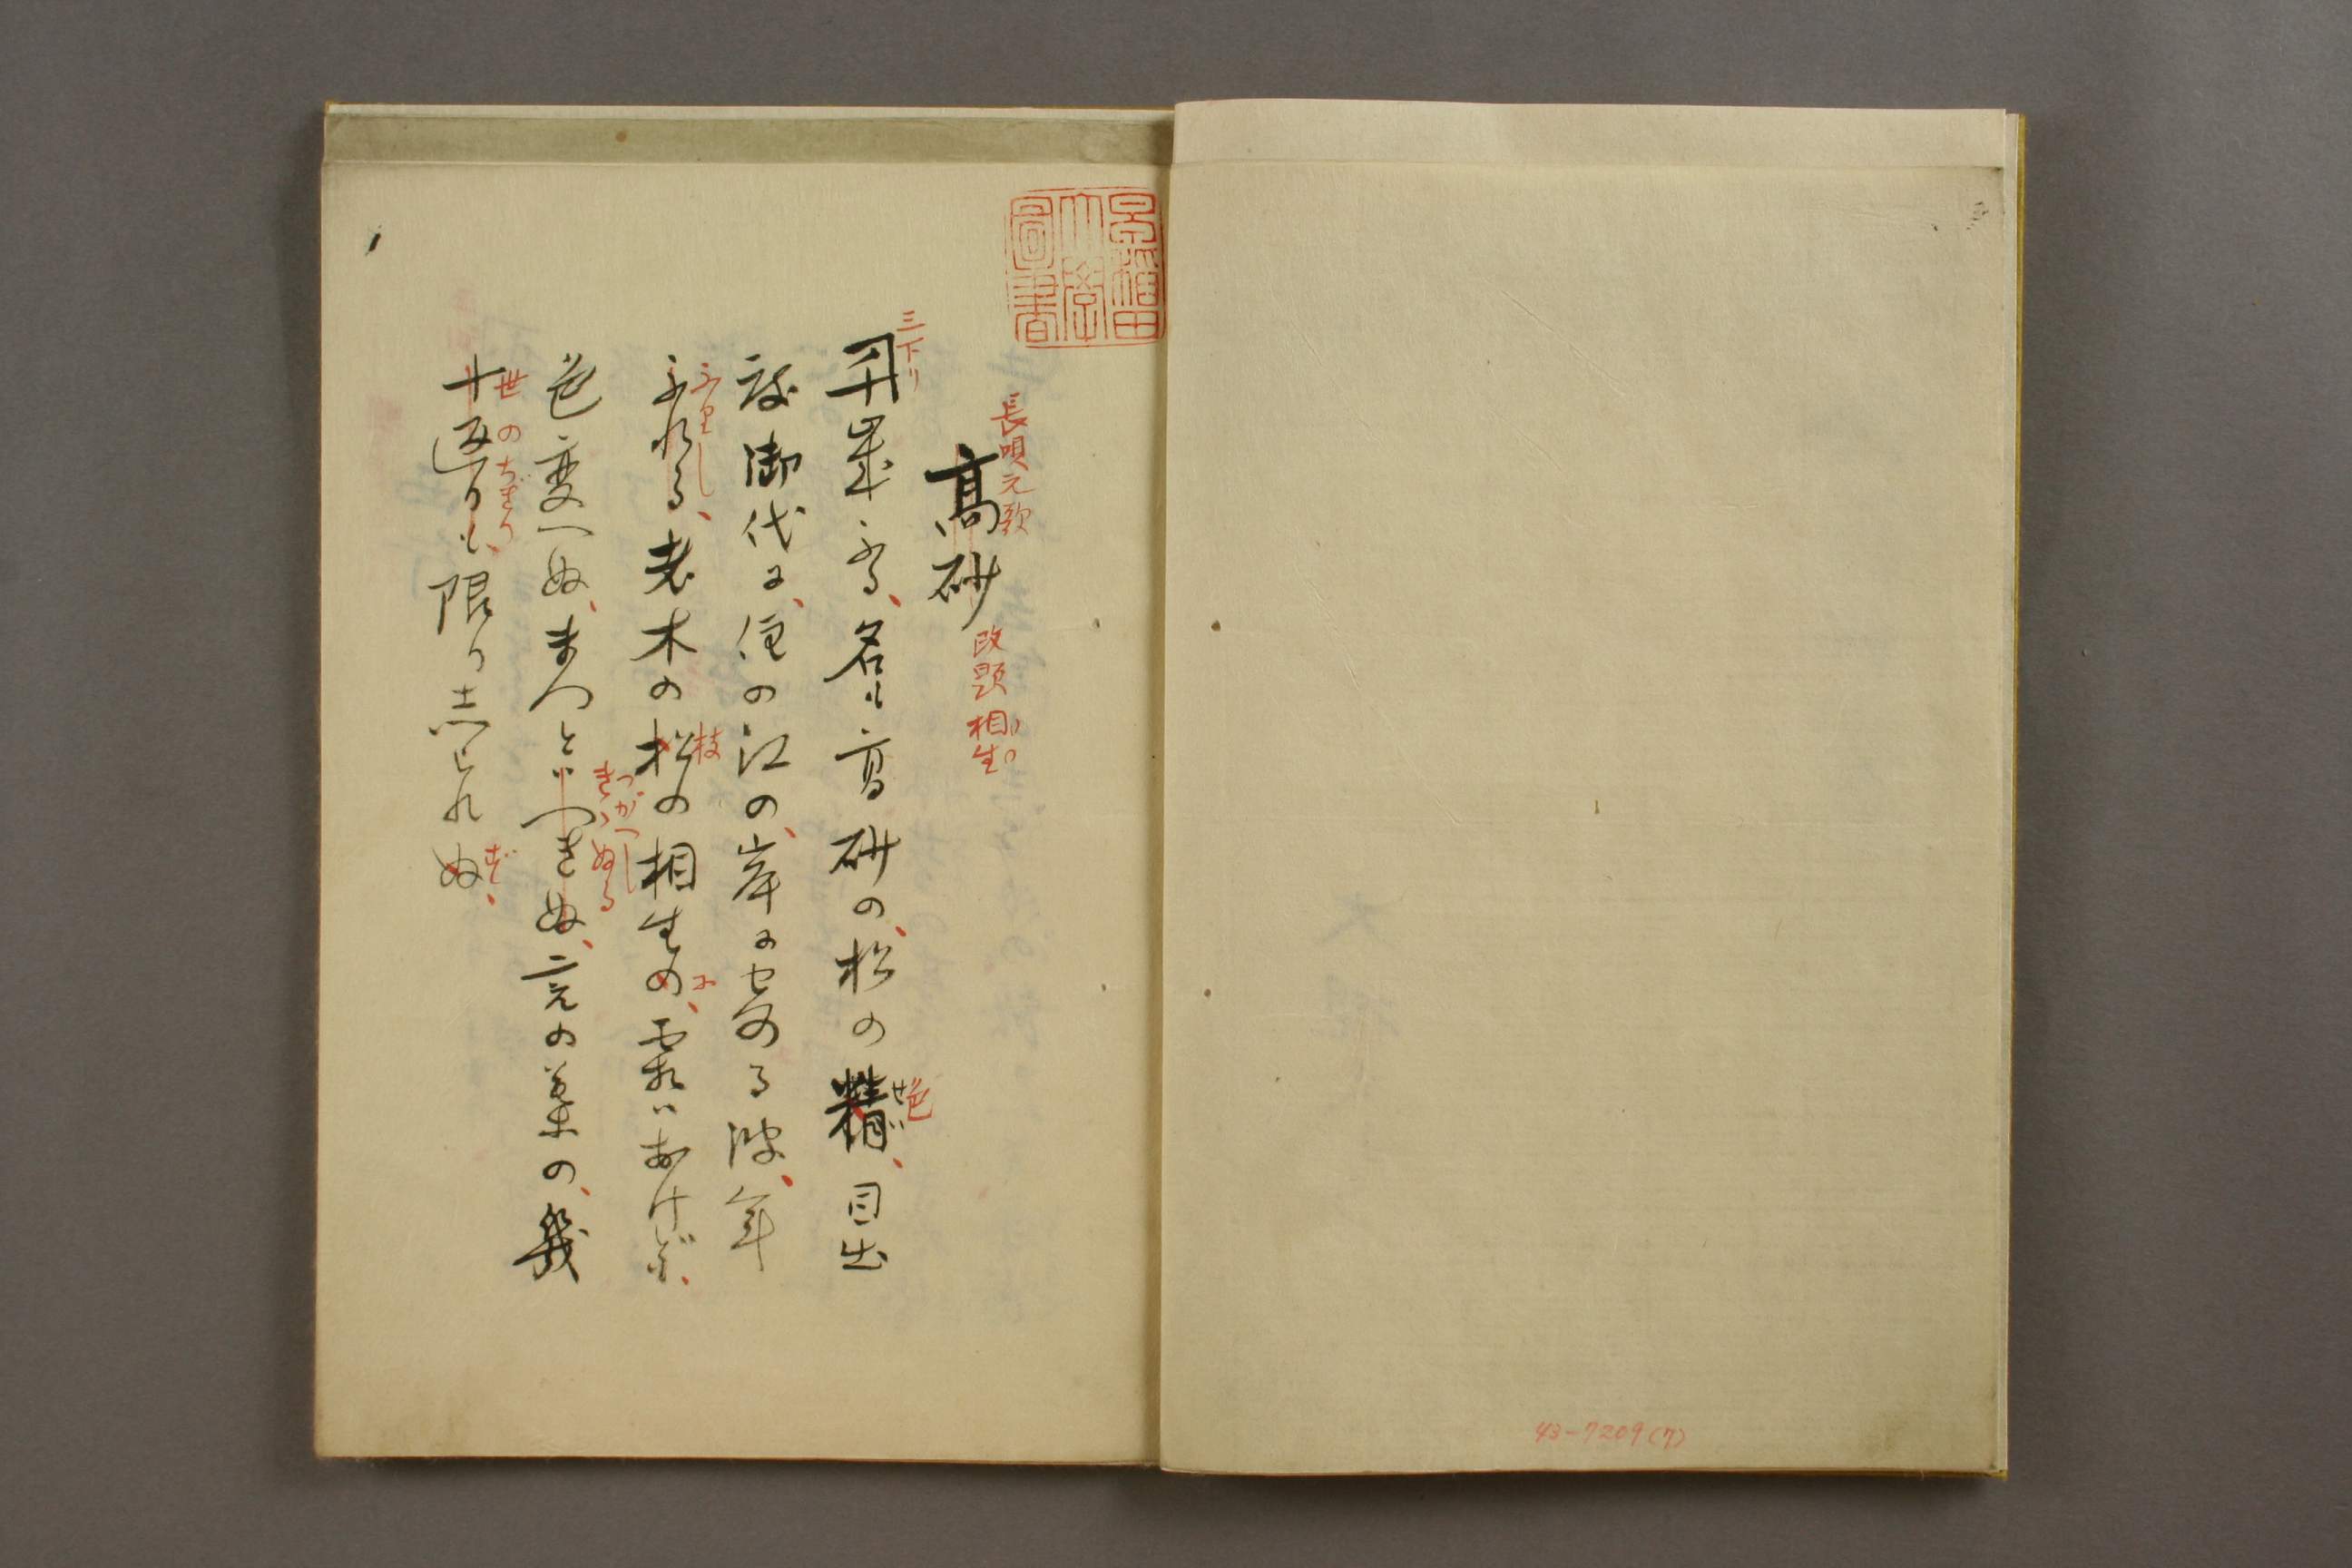 43-7209(7)
早稲田
大學
圖書
長唄元歌
高砂
改題相生
三下リ
名も高砂の、松の精、目出
色
度御代に、住の江の、岸による波、年
ふれる、老木の松の相生の、霜はおけど、
枝
に
色変へぬ、まつとつきぬ、言の葉の、幾
つがへし
きゝぬる
十返りも、限り志られぬ
世のちぎり
ず、